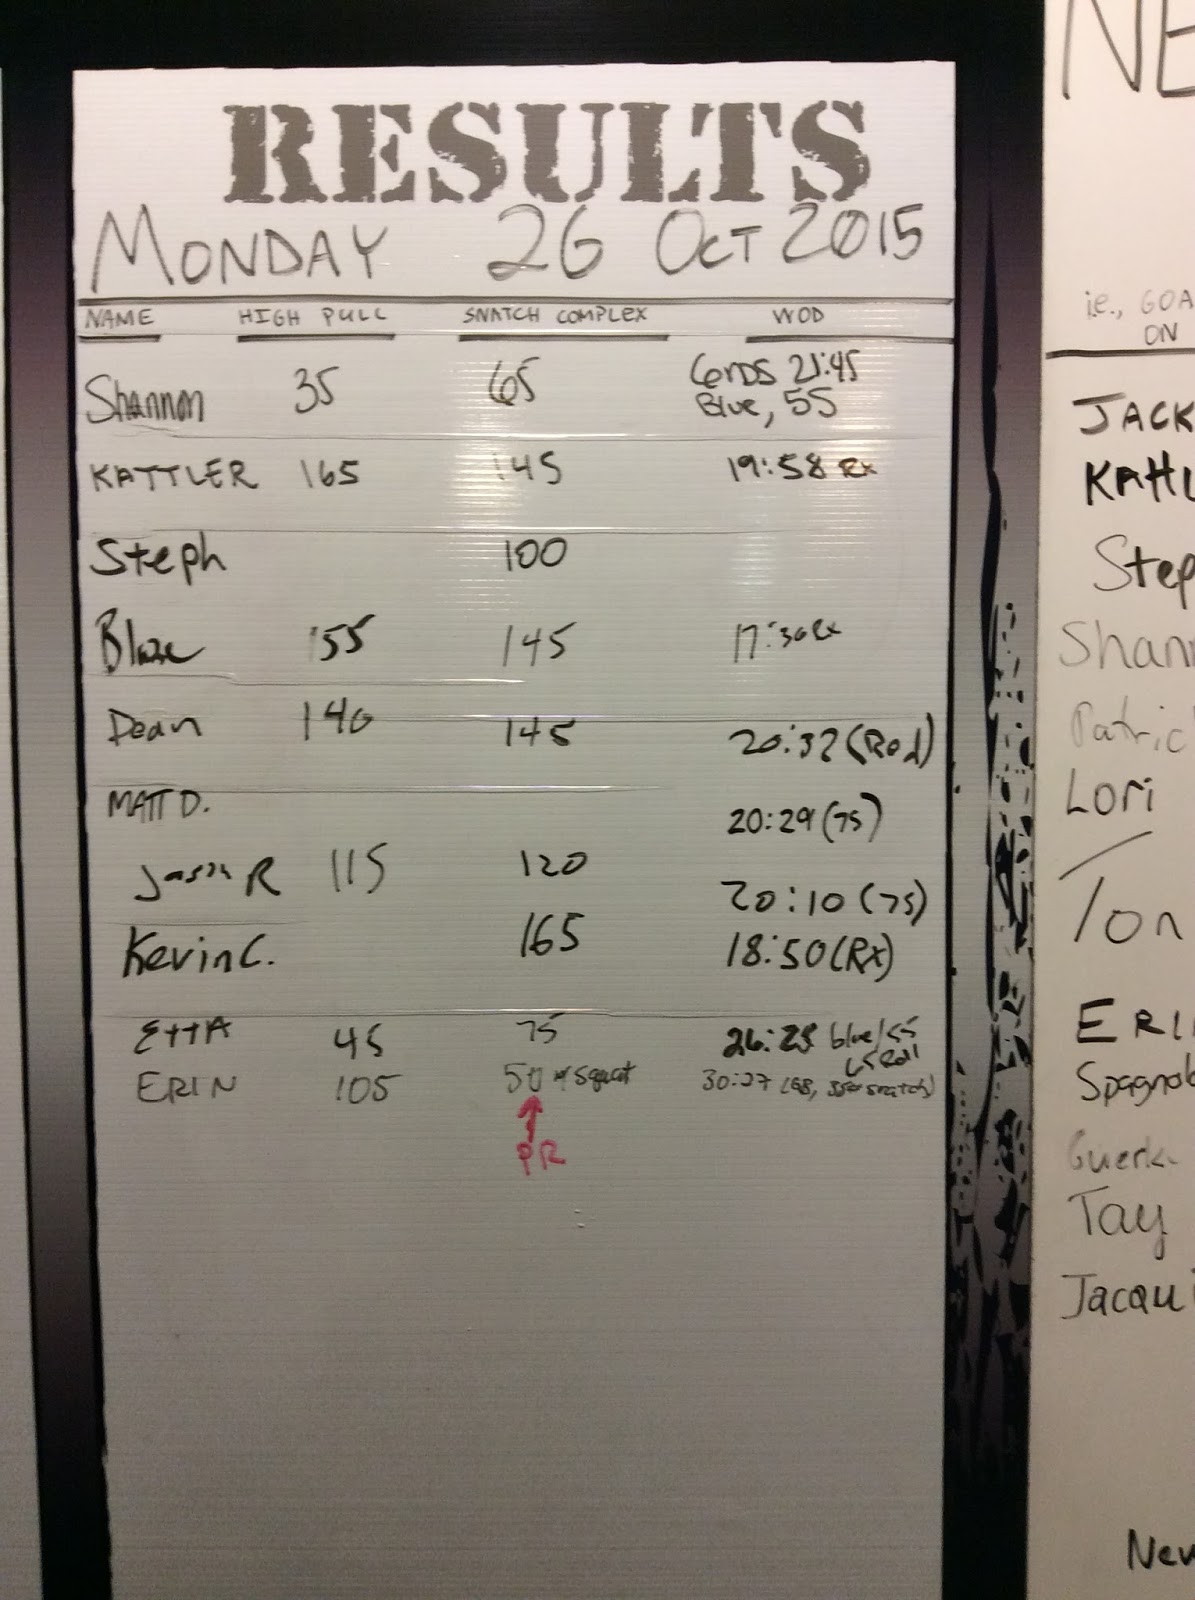 RESULTS
MONDAY 26 OCT 2015
NAME HIGH PULL SNATCH COMPLEX WOD
Shannon 35 65 6rnds 21:45
Blue, 55
KATTLER 165 145 19:58 Rx
Steph 100
Blaze 155 145 17:36 Rx
Dean 140 145 20:32 (Red)
MATT D. 20:29 (75)
Jason R 115 120 20:10 (75)
Kevin C. 165 18:50 (Rx)
EttA 45 75 26:23 blue/55
ERIN 105 50 w/ squat 30:27 snatch)
PR
NE
i.e., GOA
ON
JACK
KAHL
Step
Shann
Patric
Lori
Ton
ERI
Spagnol
Guerk
Tay
Jacqui
New